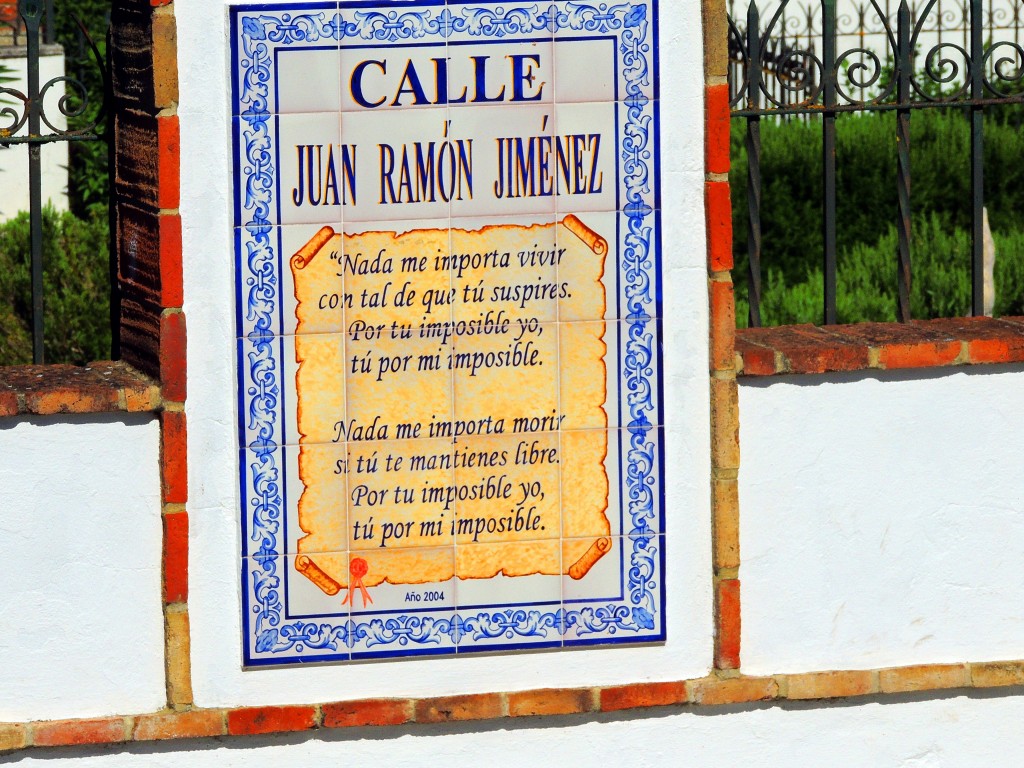 CALLE
JUAN RAMÓN JIMÉNEZ
“Nada me importa vivir
con tal de que tú suspires.
Por tu imposible yo,
tú por mi imposible.
Nada me importa morir
si tú te mantienes libre.
Por tu imposible yo,
tú por mi imposible.
Año 2004